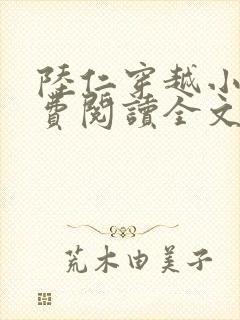 陸仁穿越小
費閱讀全文
荒木由美子